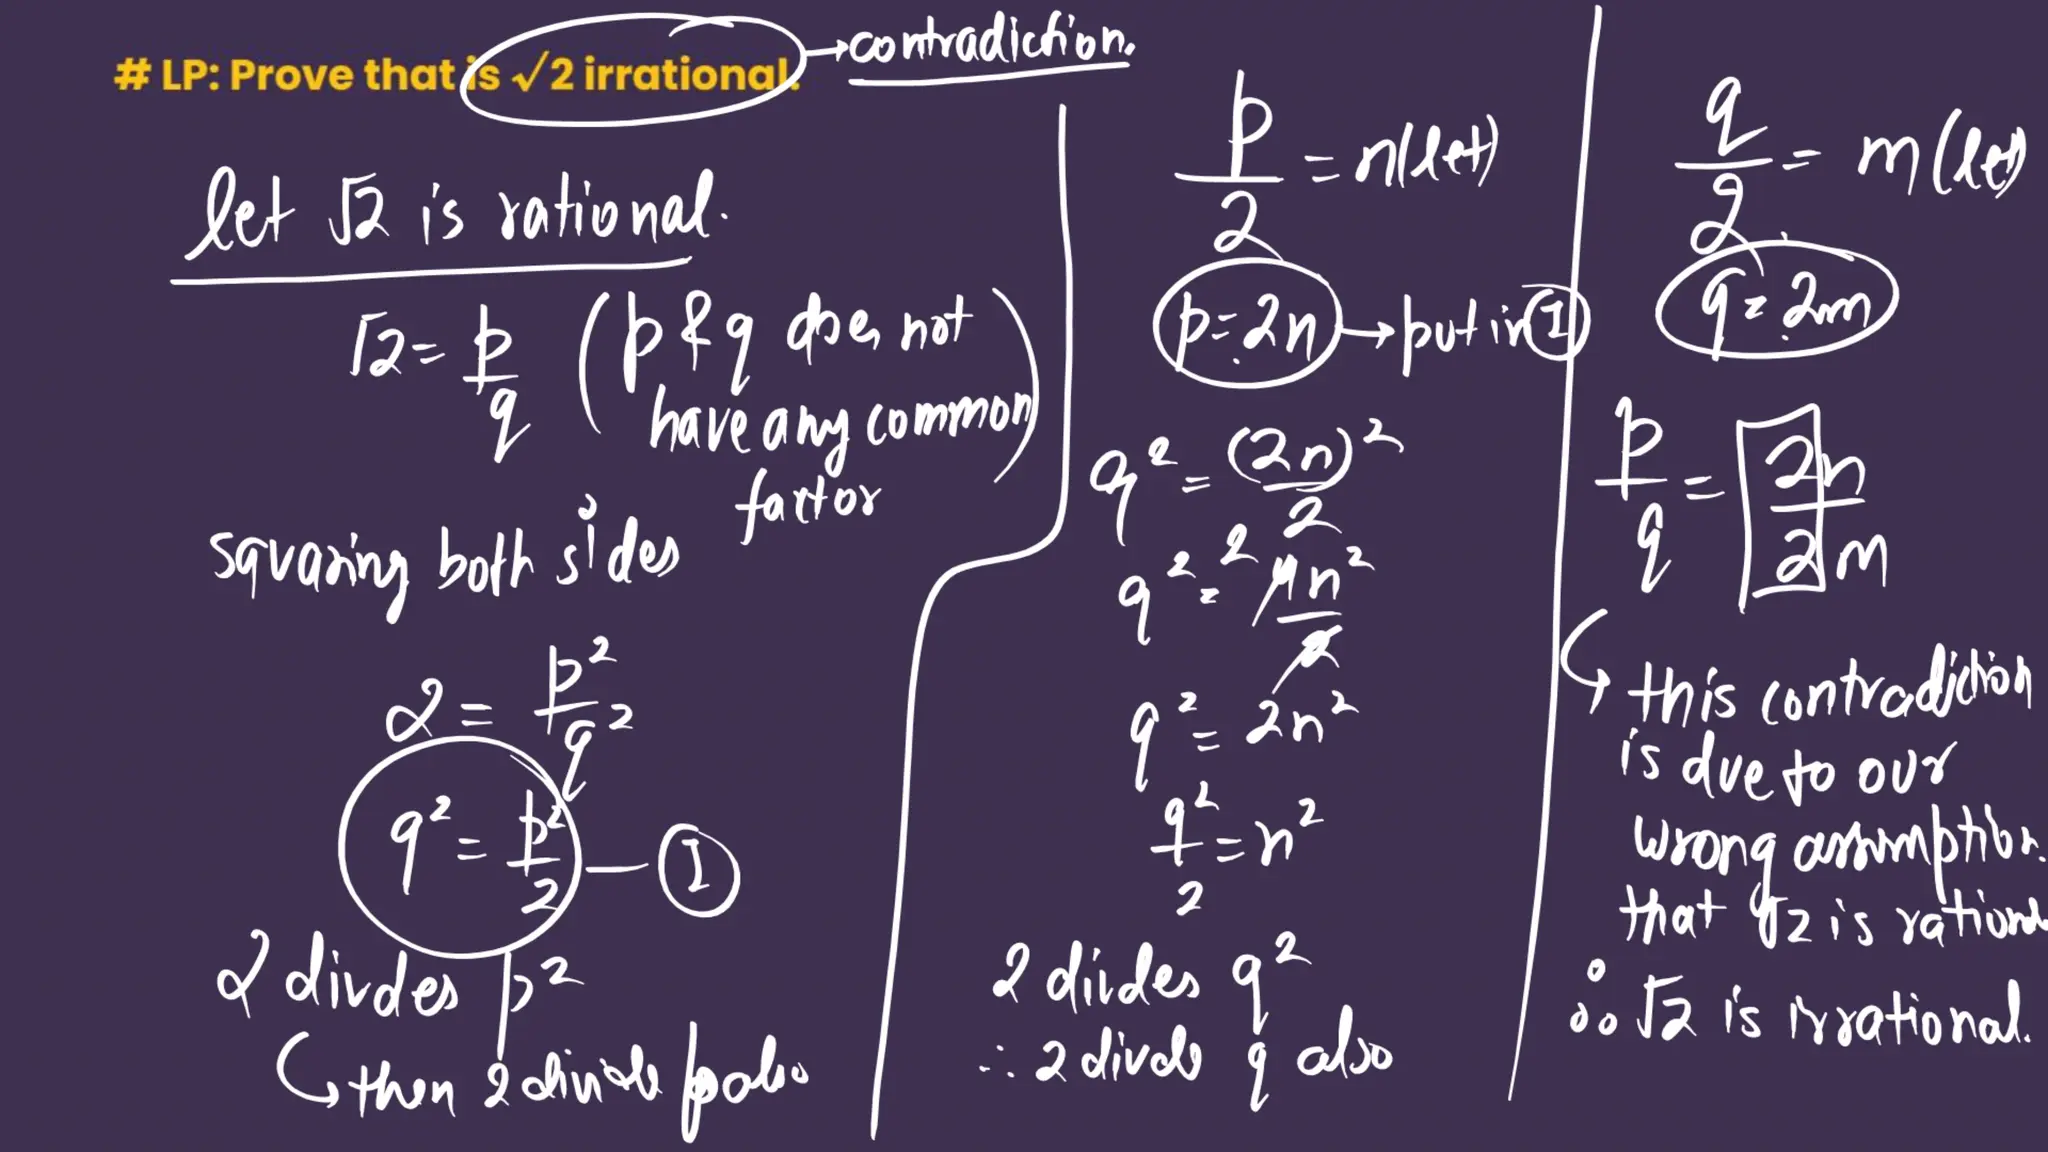 # LP: Prove that is √2 irrational.
→ contradiction.
let √2 is rational.
√2 = p/q (p & q does not
have any common
factor)
squaring both sides
2 = p²/q²
q² = p²/2 — Ⓘ
2 divdes p²
↪ then 2 divide p also
p/2 = n (let)
p = 2n → put in Ⓘ
q² = (2n)²/2
q² = 2 4n²/2
q² = 2n²
q²/2 = n²
2 divides q²
∴ 2 divide q also
q/2 = m (let)
q = 2m
p/q = 2n/2m
↪ this contradiction
is due to our
wrong assumption.
that √2 is rational
∴ √2 is irrational.